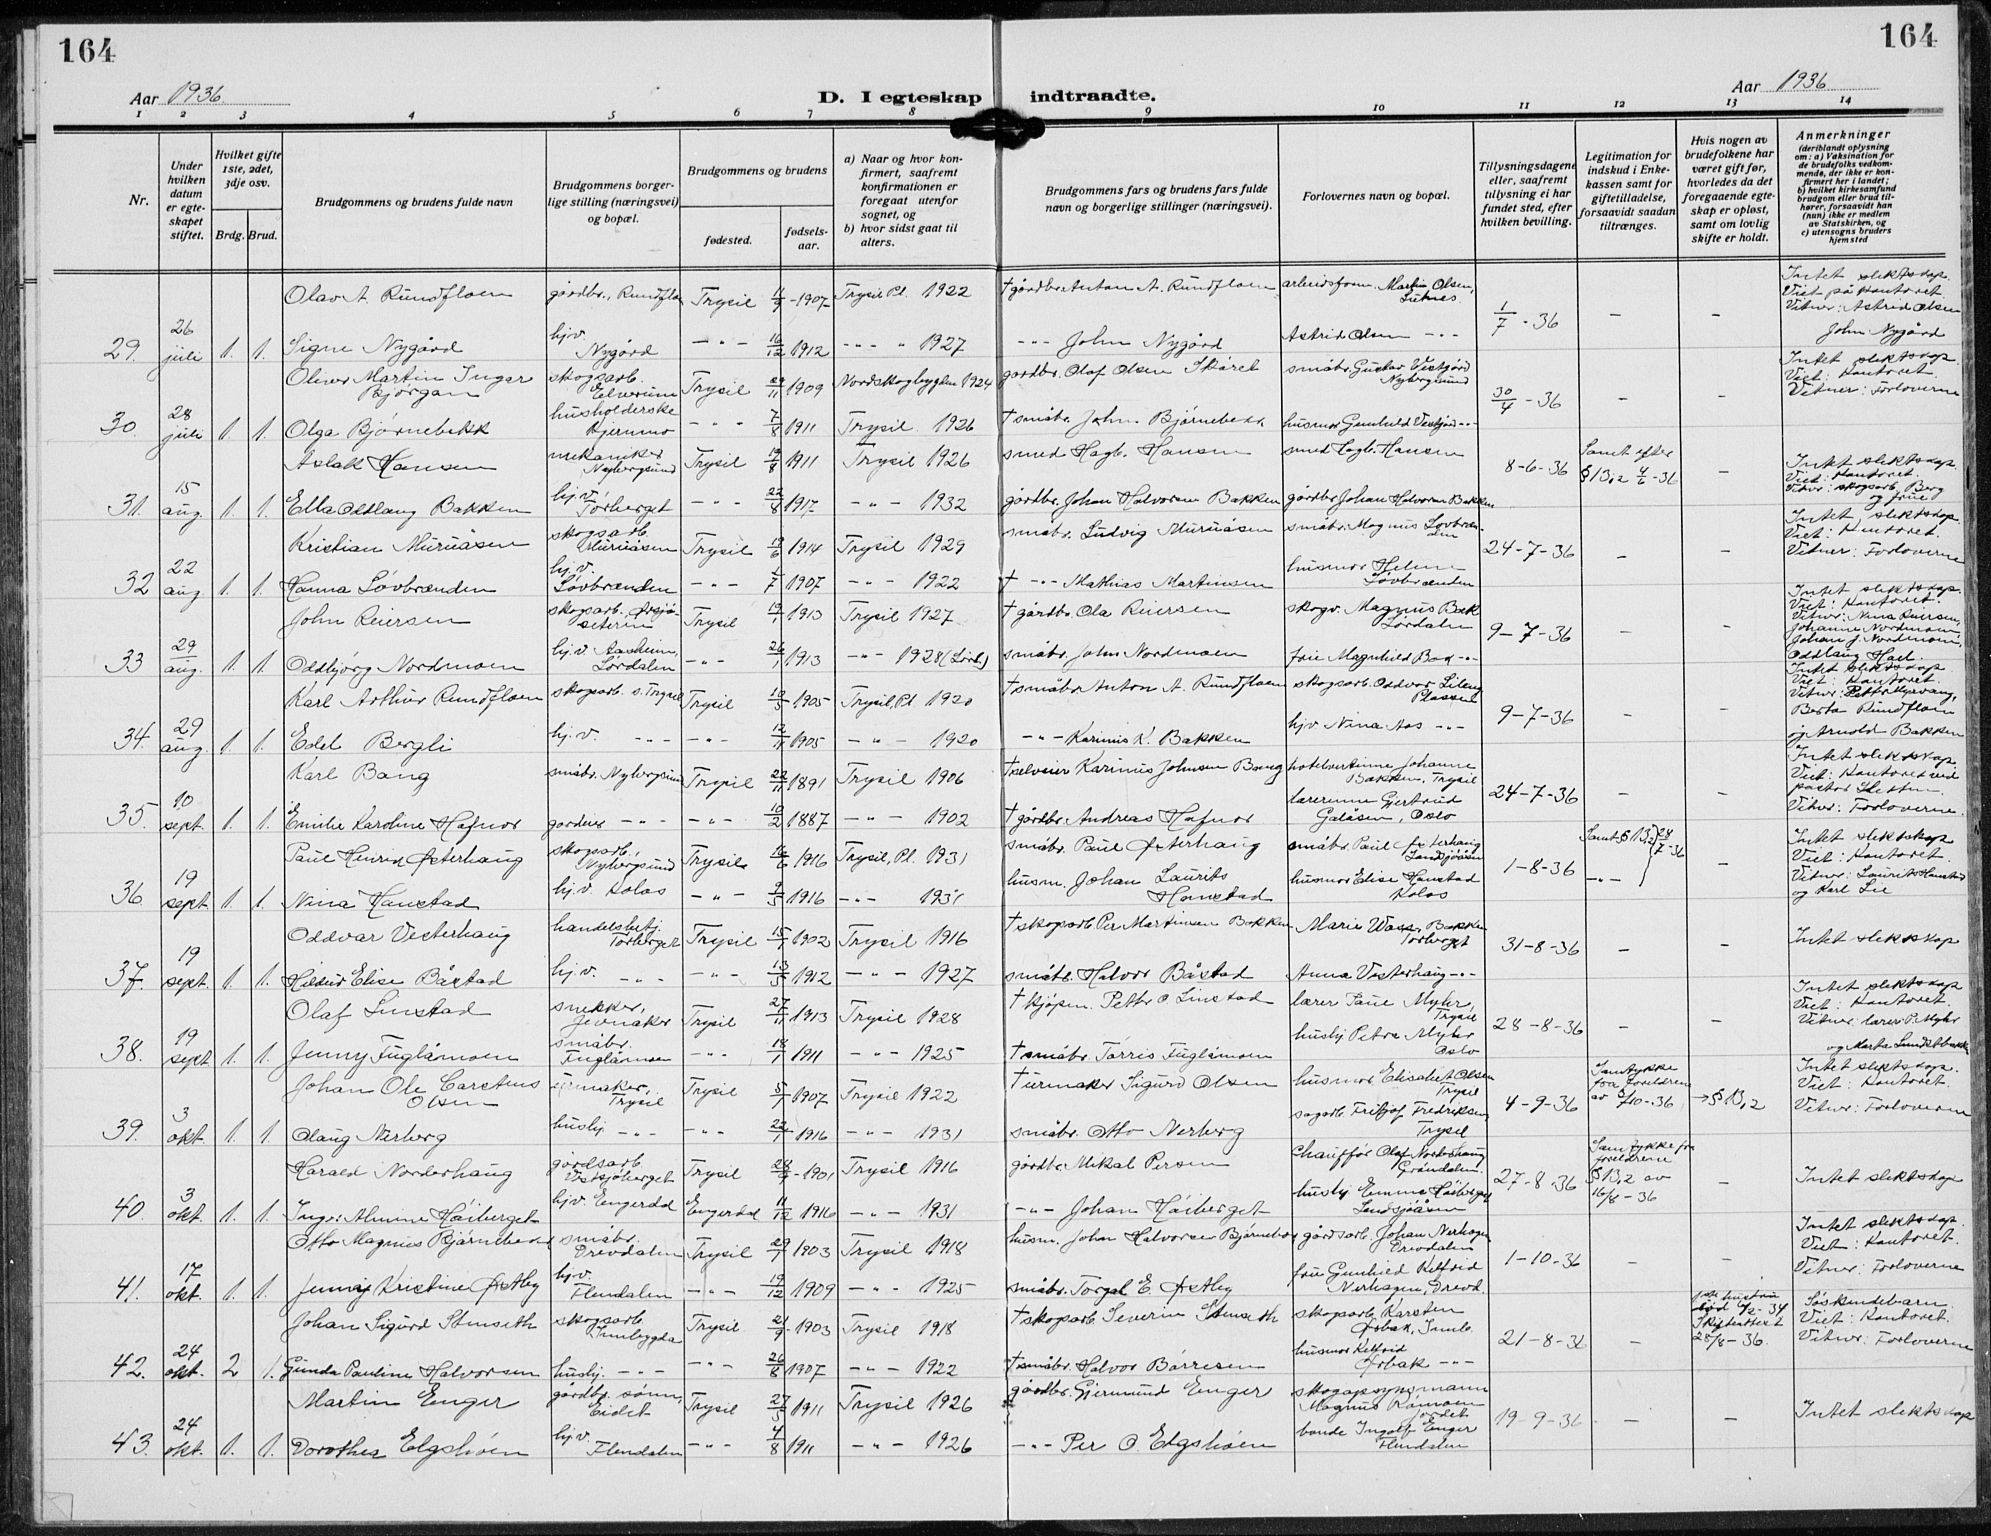 164
164
Aar 1936.
D. I egteskap indtraadte.
Aar 1936
1 2 3 4 5 6 7 8 9 10 11 12 13 14
Nr.
Under hvilken datum er egteskapet stiftet.
Hvilket gifte 1ste, 2det, 3dje osv.
Brdg. Brud.
Brudgommens og brudens fulde navn
Brudgommens borgerlige stilling (næringsvei) og bopæl.
Brudgommens og brudens
fødested.
fødselsaar.
a) Naar og hvor konfirmert, saafremt konfirmationen er foregaat utenfor sognet, og
b) hvor sidst gaat til alters.
Brudgommens fars og brudens fars fulde navn og borgerlige stillinger (næringsvei).
Forlovernes navn og bopæl.
Tillysningsdagene eller, saafremt tillysning ei har fundet sted, efter hvilken bevilling.
Legitimation for indskud i Enkekassen samt for giftetilladelse, forsaavidt saadan tiltrænges.
Hvis nogen av brudefolkene har været gift før, hvorledes da det foregaaende egteskap er opløst, samt om lovlig skifte er holdt.
Anmerkninger
(deriblandt oplysning om: a) Vaksination for de brudefolks vedkommende, der ikke er konfirmert her i landet; b) hvilket kirkesamfund brudgom eller brud tilhører, forsaavidt han (hun) ikke er medlem av Statskirken, og c) utensogns bruders hjemsted
Olav A. Rundfloen gårdbr., Rundflo Trysil 11/9 - 1907 Trysil Pl. 1922 † gårdbr. Anton A. Rundfloen arbeidsform. Martin Olsen, 1/7 - 36 - - Intet slektskap. Viet på kontoret. Vitner: Astrid Olsen John Nygård
29. 26 juli 1. 1. Signe Nygård hj.v. Nygård - " - 16/12 1912 - " - 1927 - " - John Nygård Astrid Olsen - " -
Oliver Martin Ingar Bjørgan skogsarb. Elverum Trysil 29/11 1909 Nordskogbygden 1924 gårdbr. Olaf Olsen Skåret småbr. Gustav Vestgård Nybergsund 30/4 - 36 - - Intet slektskap. Viet: Kontoret. Vitner: Forloverne
30. 28 juli 1. 1. Olga Bjørnebekk husholderske - " - 7/8 1911 Trysil 1926 † småbr. John. Bjørnebekk husmor Gunhild Vestgård - " -
Aslak Hansen mekaniker Nybergsund Trysil 19/8 1911 Trysil 1926 smed Hagb. Hansen smed Hagb. Hansen 8-6-36 Samt. efter § 13,2 - Intet slektskap. Viet: Kontoret. Vitner: skogsarb. Berg og frue
31. 15 aug. 1. 1. Ella Oddlaug Bakken hj.v. Tørberget - " - 22/8 1917 - " - 1932 gårdbr. Johan Halvorsen Bakken gårdbr. Johan Halvorsen Bakken
Kristian Muruåsen skogsarb. Muruåsen Trysil 19/6 1914 Trysil 1929 småbr. Ludvig Muruåsen småbr. Magnus Løvbrenden 24-7-36 - - Intet slektskap. Viet: Kontoret. Vitner: Forloverne
32 22 aug. 1. 1. Hanna Løvbrænden hj.v. Løvbrenden - " - 1907 - " - 1922 † - " - Mathias Martinsen husmor Helene Løvbrænden
John Reiersen skogsarb. Trysil 19/1 1913 Trysil 1927 † gårdbr. Ola Reiersen skogv. Magnus Bak Lørdalen 9-7-36 - - Intet slektskap. Viet: Kontoret. Vitner: Nina Reiersen, Johanne Nordmoen Johan J. Nordmoen, Oddlaug
33 29 aug. 1. 1. Oddbjørg Nordmoen hj.v. Lørdalen - " - 26/1 1913 - " - 1928 småbr. John Nordmoen frue Magnhild Bak - " -
Karl Arthur Rundfloen skogsarb. S. Trysil Trysil 10/5 1905 Trysil, Pl. 1920 † småbr. Anton A. Rundfloen skogsarb. Oddvar Plassen 9-7-36 - - Intet slektskap. Viet: Kontoret. Vitner: Berta Rundfloen og Arnold Bakken
34. 29 aug. 1. 1. Edel Bergli hj.v. - " - - " - 12/11 1905 - " - 1920 - " - Karinus K. Bakken hjv. Nina Aas - " -
Karl Bang småbr. Nybergsund Trysil 22/11 1891 Trysil 1906 † selveier Karinus Johnsen Bang hotelvertinne Johanne Bakken, Trysil 24-7-36 - - Intet slektskap. Viet: Kontoret ved pastor Vitner: Forloverne.
35. 10 sept. 1. 1. Emilie Karoline Hafnor - " - - " - 10/2 1887 - " - 1902 † gårdbr. Andreas Hafnor lærerinne Gjertrud Galåsen, Oslo
Paul Henrid Østerhaug skogsarb. Nybergsund Trysil 16/6 1916 Trysil, Pl. 1931 småbr. Paul Østerhaug småbr. Paul Østerhaug 1-8-36 Samt. § 13,2 28/7-36 - Intet slektskap Viet: Kontoret. Vitner: Laurits Hanstad og Karl Lie
36. 19 sept 1. 1. Nina Hanstad hj.v. Kolos - " - 9/5 1916 - " - 1931 husm. Johan Laurits Hanstad husmor Elise Hanstad Kolos - " -
Oddvar Vesterhaug handelsbetj. Tørberget Trysil 15/7 1902 Trysil 1916 † skogsarb. Per Martinsen Bakken Marie Bakken Tørberget 31-8-36 - - Intet slektskap
37. 19 sept. 1. 1. Hildur Elise Båstad hj.v. - " - - " - 13/5 1912 - " - 1927 småbr. Halvor Båstad Anna Vesterhaug - " -
Olaf Linstad snekker, Jevnaker Trysil 27/11 1913 Trysil 1928 † kjøpm. Petter O Linstad lærer Paul Myhr, Trysil 28-8-36 - - Intet slektskap Viet: Kontoret. Vitner: lærer P. Myhr og Marta
38. 19 sept 1. 1. Jenny Fuglåmoen småbr. Fuglåmoen - " - 18/1 1911 - " - 1925 † småbr. Tørris Fuglåmoen husbj. Petra Myhr Oslo
Johan Ole Carstens Olsen urmaker, Trysil Trysil 5/7 1907 Trysil 1922 † urmaker Sigurd Olsen husmor Elisabet Olsen Trysil 4-9-36 Samtykke fra foreldrene av -36 → § 13,2 Intet slektskap. Viet: Kontoret. Vitner: Forloverne
39. 3 okt. 1. 1. Olaug Nerberg husbj. - " - - " - 22/1 1916 - " - 1931 småbr. Otto Nerberg sagarb. Fritjof Fredriksen, Trysil
Harald Norderhaug gårdsarb. Vestsjøberget Trysil 28/9 - 1901 Trysil 1916 gårdbr. Mikal Persen chauffør Olaf Norderhaug Grøndalen 27-8-36 Samtykke fra foreldrene § 13,2 av 16/8-36 - Intet slektskap
40. 3 okt. 1. 1. Ingrid Almine Høiberget hjv. Engerdal Engerdal 11/12 1916 - " - 1931 - " - Johan Høiberget husbj. Emma Høiberget
Otto Magnus Bjørnebekk småbr. Drevdalen Trysil 29/7 1903 Trysil 1918 husm. John Halvorsen Bjørnebekk gårdsarb. Johan Nerhagen Drevdalen 1-10-36 - - Intet slektskap. Viet: Kontoret. Vitner: Forloverne
41. 17 okt. 1. 1. Jenny Kristine Østby hj.v. Flendalen - " - 19/12 1909 - " - 1925 småbr. Torgal E. Østby frue Gunhild Nerhagen, Drevd.
Johan Sigurd Stenseth skogsarb. Innbygda Trysil 21/9 - 1903 Trysil 1918 † skogsarb. Severin Stenseth skogsarb. Karsten Ørbak, Innb. 21-8-36 - 1ste hustru død -34 Skifteattest 25/8-36. Søskendebarn. Viet: Kontoret. Vitner: Forloverne
42. 24 okt. 2 1. Gunda Pauline Halvorsen husbj. - " - - " - 26/8 1907 - " - 1922 † småbr. Halvor Børresen husmor Ørbak - " -
Martin Enger gårdbr. sønn, Eidet Trysil 27/5 1911 Trysil 1926 gårdbr. Gjermund Enger skogopsynsmann Magnus 19-9-36 - - Intet slektskap
43. 24 okt. 1. 1. Dorothea Elgshøen hj.v. Flendalen - " - 4/8 1911 - " - 1926 - " - Per O. Elgshøen bonde Ingolf Enger Flendalen